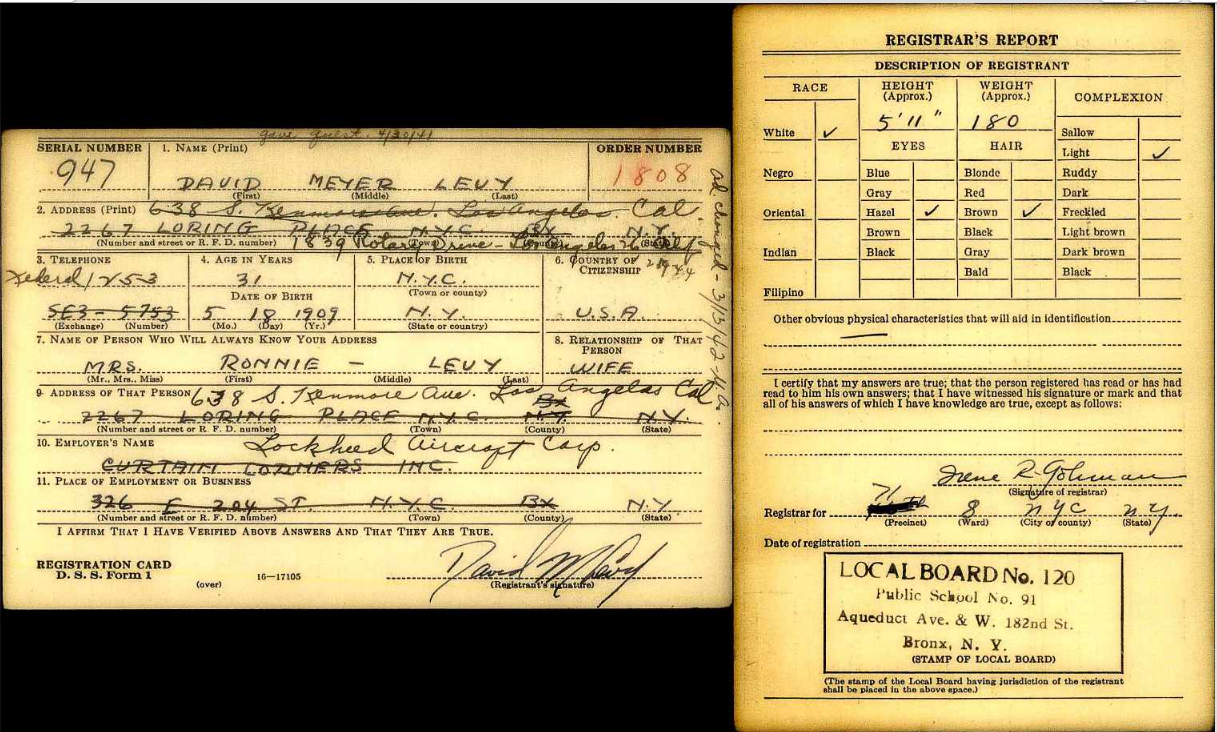 gave quest. 4/30/41
SERIAL NUMBER 1. NAME (Print) ORDER NUMBER
947 DAVID MEYER LEVY 1808
(First) (Middle) (Last)
2. ADDRESS (Print) 638 S. Kenmore Ave. Los Angelas. Cal.
2267 LORING PLACE N.Y.C. BX N.Y.
(Number and street or R. F. D. number) (Town) (County) (State)
1839 Rotary Drive - Los Angeles 26 Calif
3. TELEPHONE 4. AGE IN YEARS 5. PLACE OF BIRTH 6. COUNTRY OF CITIZENSHIP
Federal 1253 31 N.Y.C.
(Town or county)
DATE OF BIRTH
SE3-5753 5 18 1909 N.Y. U.S.A.
(Exchange) (Number) (Mo.) (Day) (Yr.) (State or country)
7. NAME OF PERSON WHO WILL ALWAYS KNOW YOUR ADDRESS 8. RELATIONSHIP OF THAT PERSON
MRS. RONNIE – LEVY WIFE
(Mr., Mrs., Miss) (First) (Middle) (Last)
9. ADDRESS OF THAT PERSON 638 S. Kenmore Ave. Los Angelas Cal
Bx
2267 LORING PLACE N.Y.C. N.Y. N.Y.
(Number and street or R. F. D. number) (Town) (County) (State)
10. EMPLOYER'S NAME Lockheed Aircraft Corp.
CURTAIN INC.
11. PLACE OF EMPLOYMENT OR BUSINESS
326 E 204 ST. N.Y.C. BX N.Y
(Number and street or R. F. D. number) (Town) (County) (State)
I AFFIRM THAT I HAVE VERIFIED ABOVE ANSWERS AND THAT THEY ARE TRUE.
REGISTRATION CARD
D. S. S. Form 1 (over) 16—17105 David M Levy
(Registrant's signature)
ad changed - 3/13/42
REGISTRAR'S REPORT
DESCRIPTION OF REGISTRANT
RACE HEIGHT (Approx.) WEIGHT (Approx.) COMPLEXION
5'11" 180
White ✓ EYES HAIR Sallow
Light ✓
Negro Blue Blonde Ruddy
Gray Red Dark
Oriental Hazel ✓ Brown ✓ Freckled
Brown Black Light brown
Indian Black Gray Dark brown
Bald Black
Filipino
Other obvious physical characteristics that will aid in identification
I certify that my answers are true; that the person registered has read or has had
read to him his own answers; that I have witnessed his signature or mark and that
all of his answers of which I have knowledge are true, except as follows:
Irene R.
(Signature of registrar)
Registrar for 71 8 NYC N.Y.
(Precinct) (Ward) (City or county) (State)
Date of registration
LOCAL BOARD No. 120
Public School No. 91
Aqueduct Ave. & W. 182nd St.
Bronx, N. Y.
(STAMP OF LOCAL BOARD)
(The stamp of the Local Board having jurisdiction of the registrant
shall be placed in the above space.)